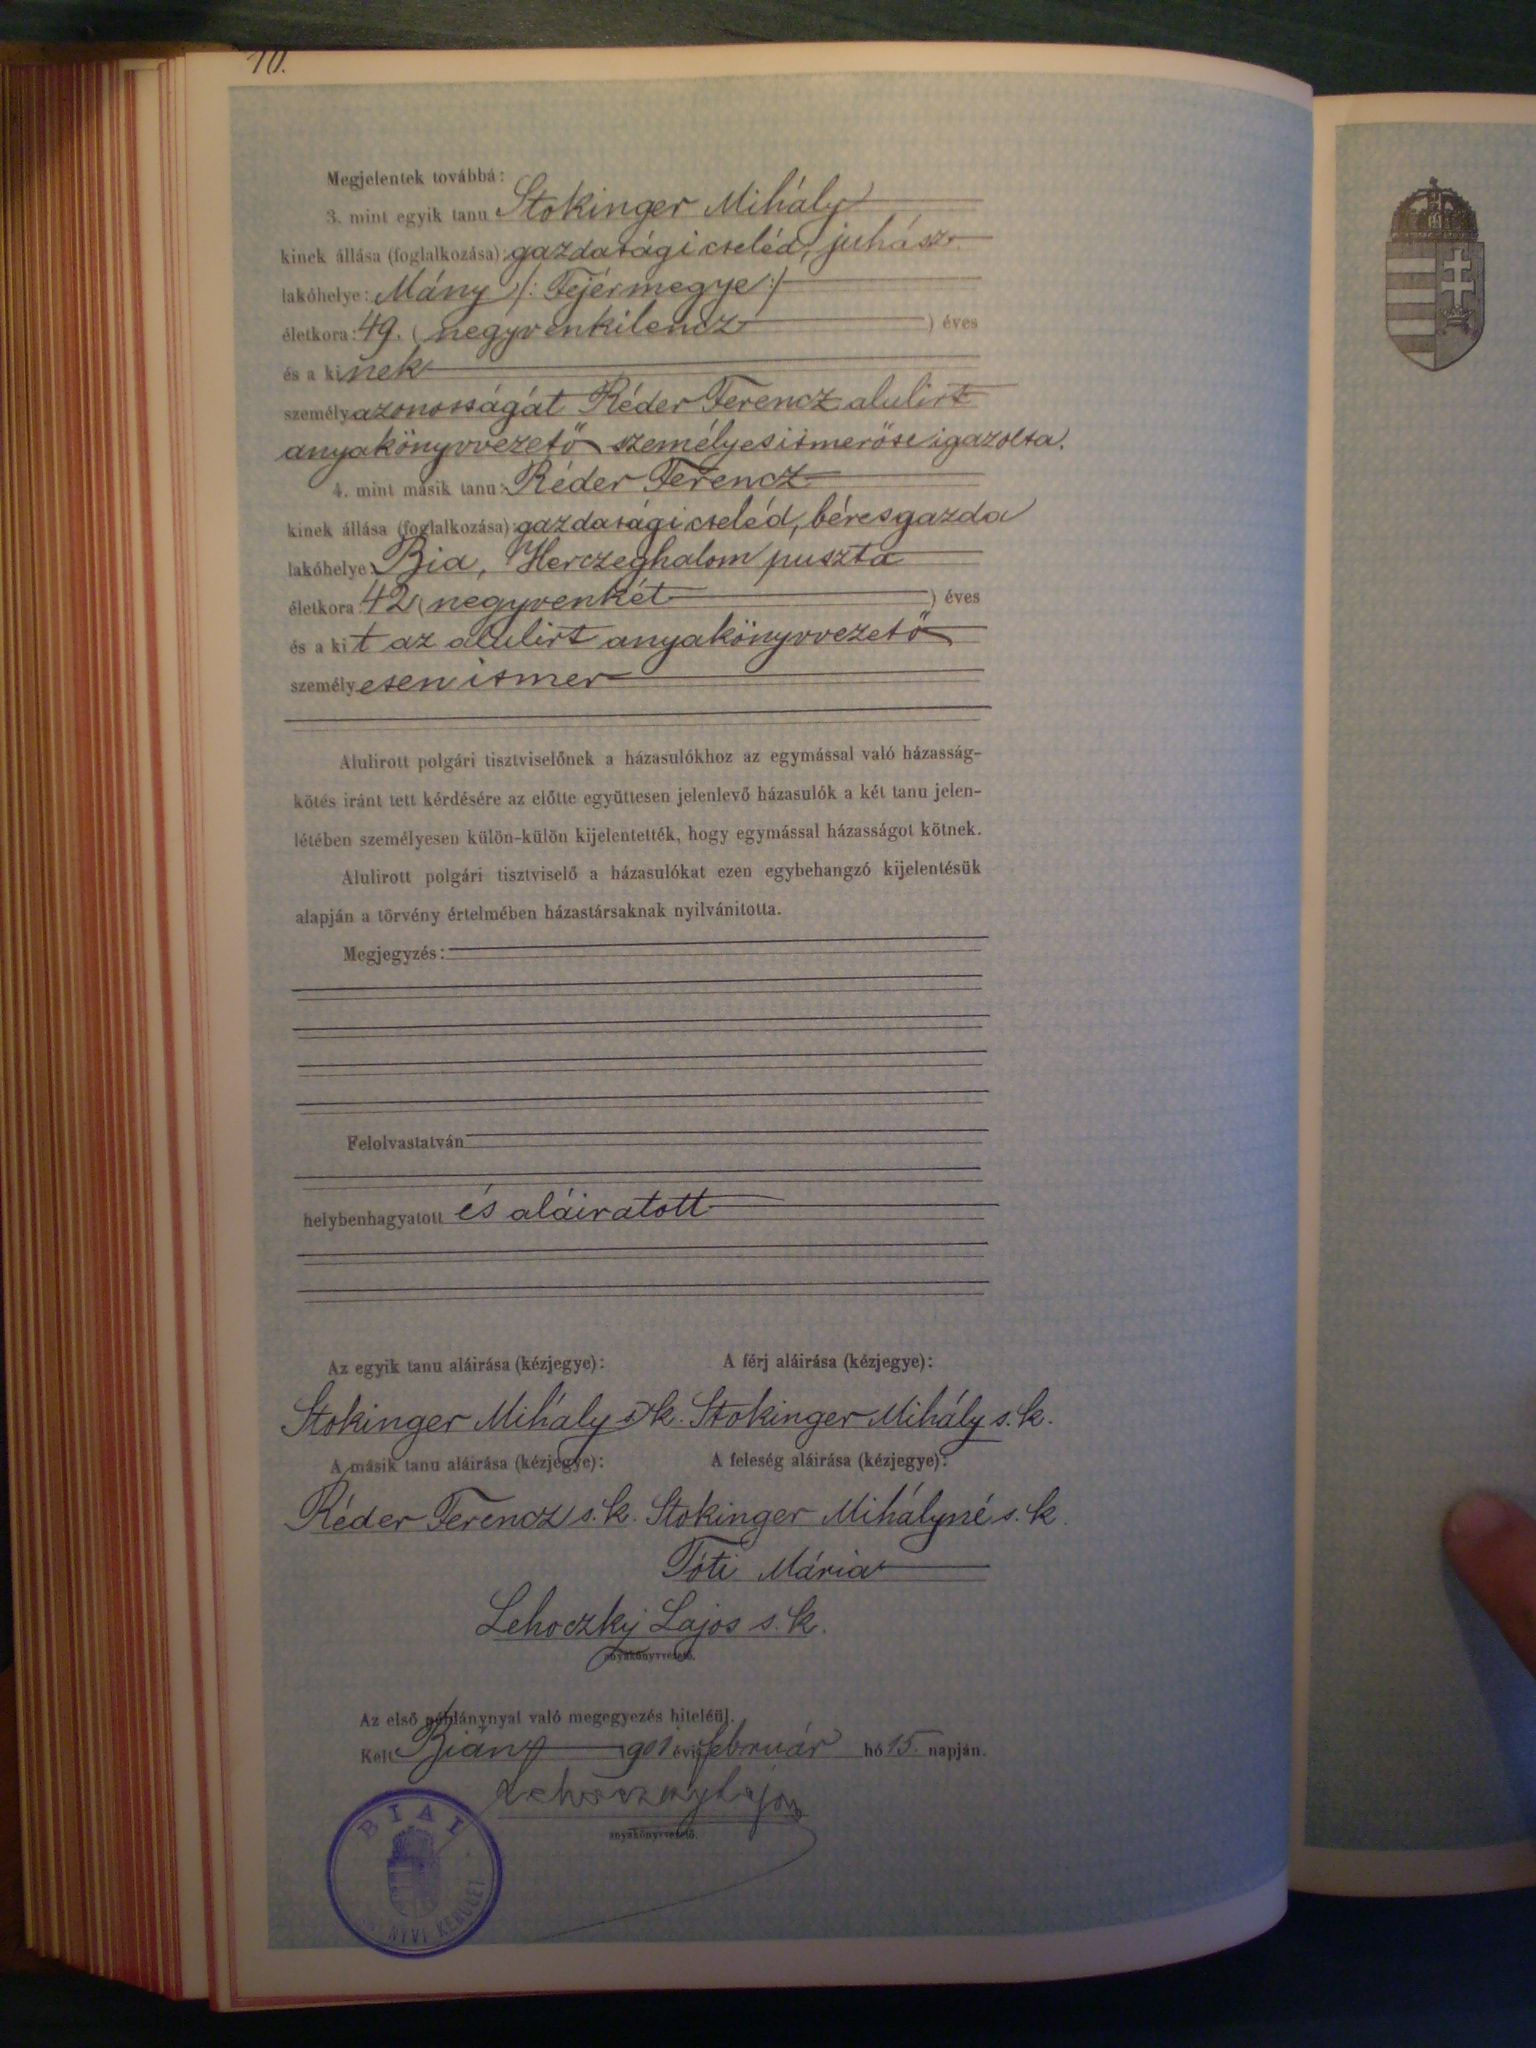 10.
Megjelentek továbbá:
3. mint egyik tanu Stokinger Mihály
kinek állása (foglalkozása): gazdasági cseléd, juhász
lakóhelye: Mány /: Fejérmegye :/
életkora: 49. ( negyvenkilencz ) éves
és a kinek
személyazonosságát Réder Ferencz alulirt
anyakönyvvezető személyes ismerőse igazolta.
4. mint másik tanu: Réder Ferencz
kinek állása (foglalkozása): gazdasági cseléd, béresgazda
lakóhelye: Bia, Herczeghalom puszta
életkora: 42 ( negyvenkét ) éves
és a kit az alulirt anyakönyvvezető
személyesen ismer
Alulirott polgári tisztviselőnek a házasulókhoz az egymással való házasság-
kötés iránt tett kérdésére az előtte együttesen jelenlevő házasulók a két tanu jelen-
létében személyesen külön-külön kijelentették, hogy egymással házasságot kötnek.
Alulirott polgári tisztviselő a házasulókat ezen egybehangzó kijelentésük
alapján a törvény értelmében házastársaknak nyilvánitotta.
Megjegyzés:
Felolvastatván
helybenhagyatott és aláiratott
Az egyik tanu aláirása (kézjegye): A férj aláirása (kézjegye):
Stokinger Mihály s. k. Stokinger Mihály s. k.
A másik tanu aláirása (kézjegye): A feleség aláirása (kézjegye):
Réder Ferencz s. k. Stokinger Mihályné s. k.
Tóti Mária
Lehoczky Lajos s. k.
anyakönyvvezető.
Az első példánynyal való megegyezés hiteléül.
Kelt Bián, 1901 évi február hó 15. napján.
Lehoczky Lajos
anyakönyvvezető.
BIAI
NYVI KERÜLET